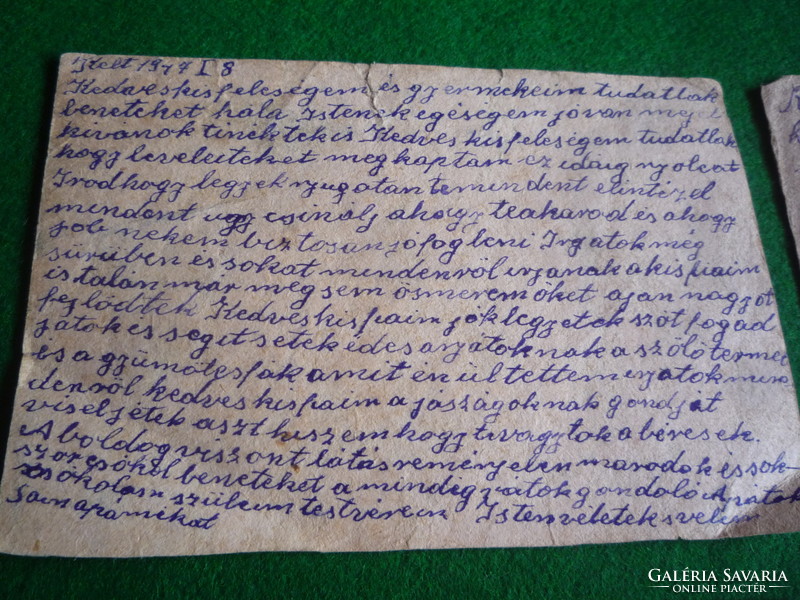 Kelt 1947 I 8
Kedves kis feleségem és gyermekeim tudatlak
benteket hála Istenek egéségem jóvan mejet
kivánok tinektekis Kedves kisfeleségem tudatlak
hogy leveleiteket megkaptam ez idáig nyolcat
Irod hogy legyek nyugotan te mindent elintézel
mindent ugy csinálj ahogy te akarod és ahogy
job nekem biztosan jó fog leni Irgatok még
sürüben és sokat mindenröl irjanak a kisfiaim
is talán már megsem ösmerem öket ajan nagyot
fejlödtek Kedves kisfiaim jók legyetek szót fogad
jatok és segitsetek édes anyátoknak a szölö termet
és a gyümölcsfák amit én ültettem irjatok min
denröl kedves kisfiaim a jószágoknak gondját
viseljétek aszt hiszem hogy ti vagytok a béresek.
A boldog viszont látás reményjében maradok és sok-
szor csókol benteket a mindég rátok gondoló Apátok
csókolom szüleim testvéreim Isten veletek s velem
Janapámékat
GALÉRIA SAVARIA
ONLINE PIACTÉR